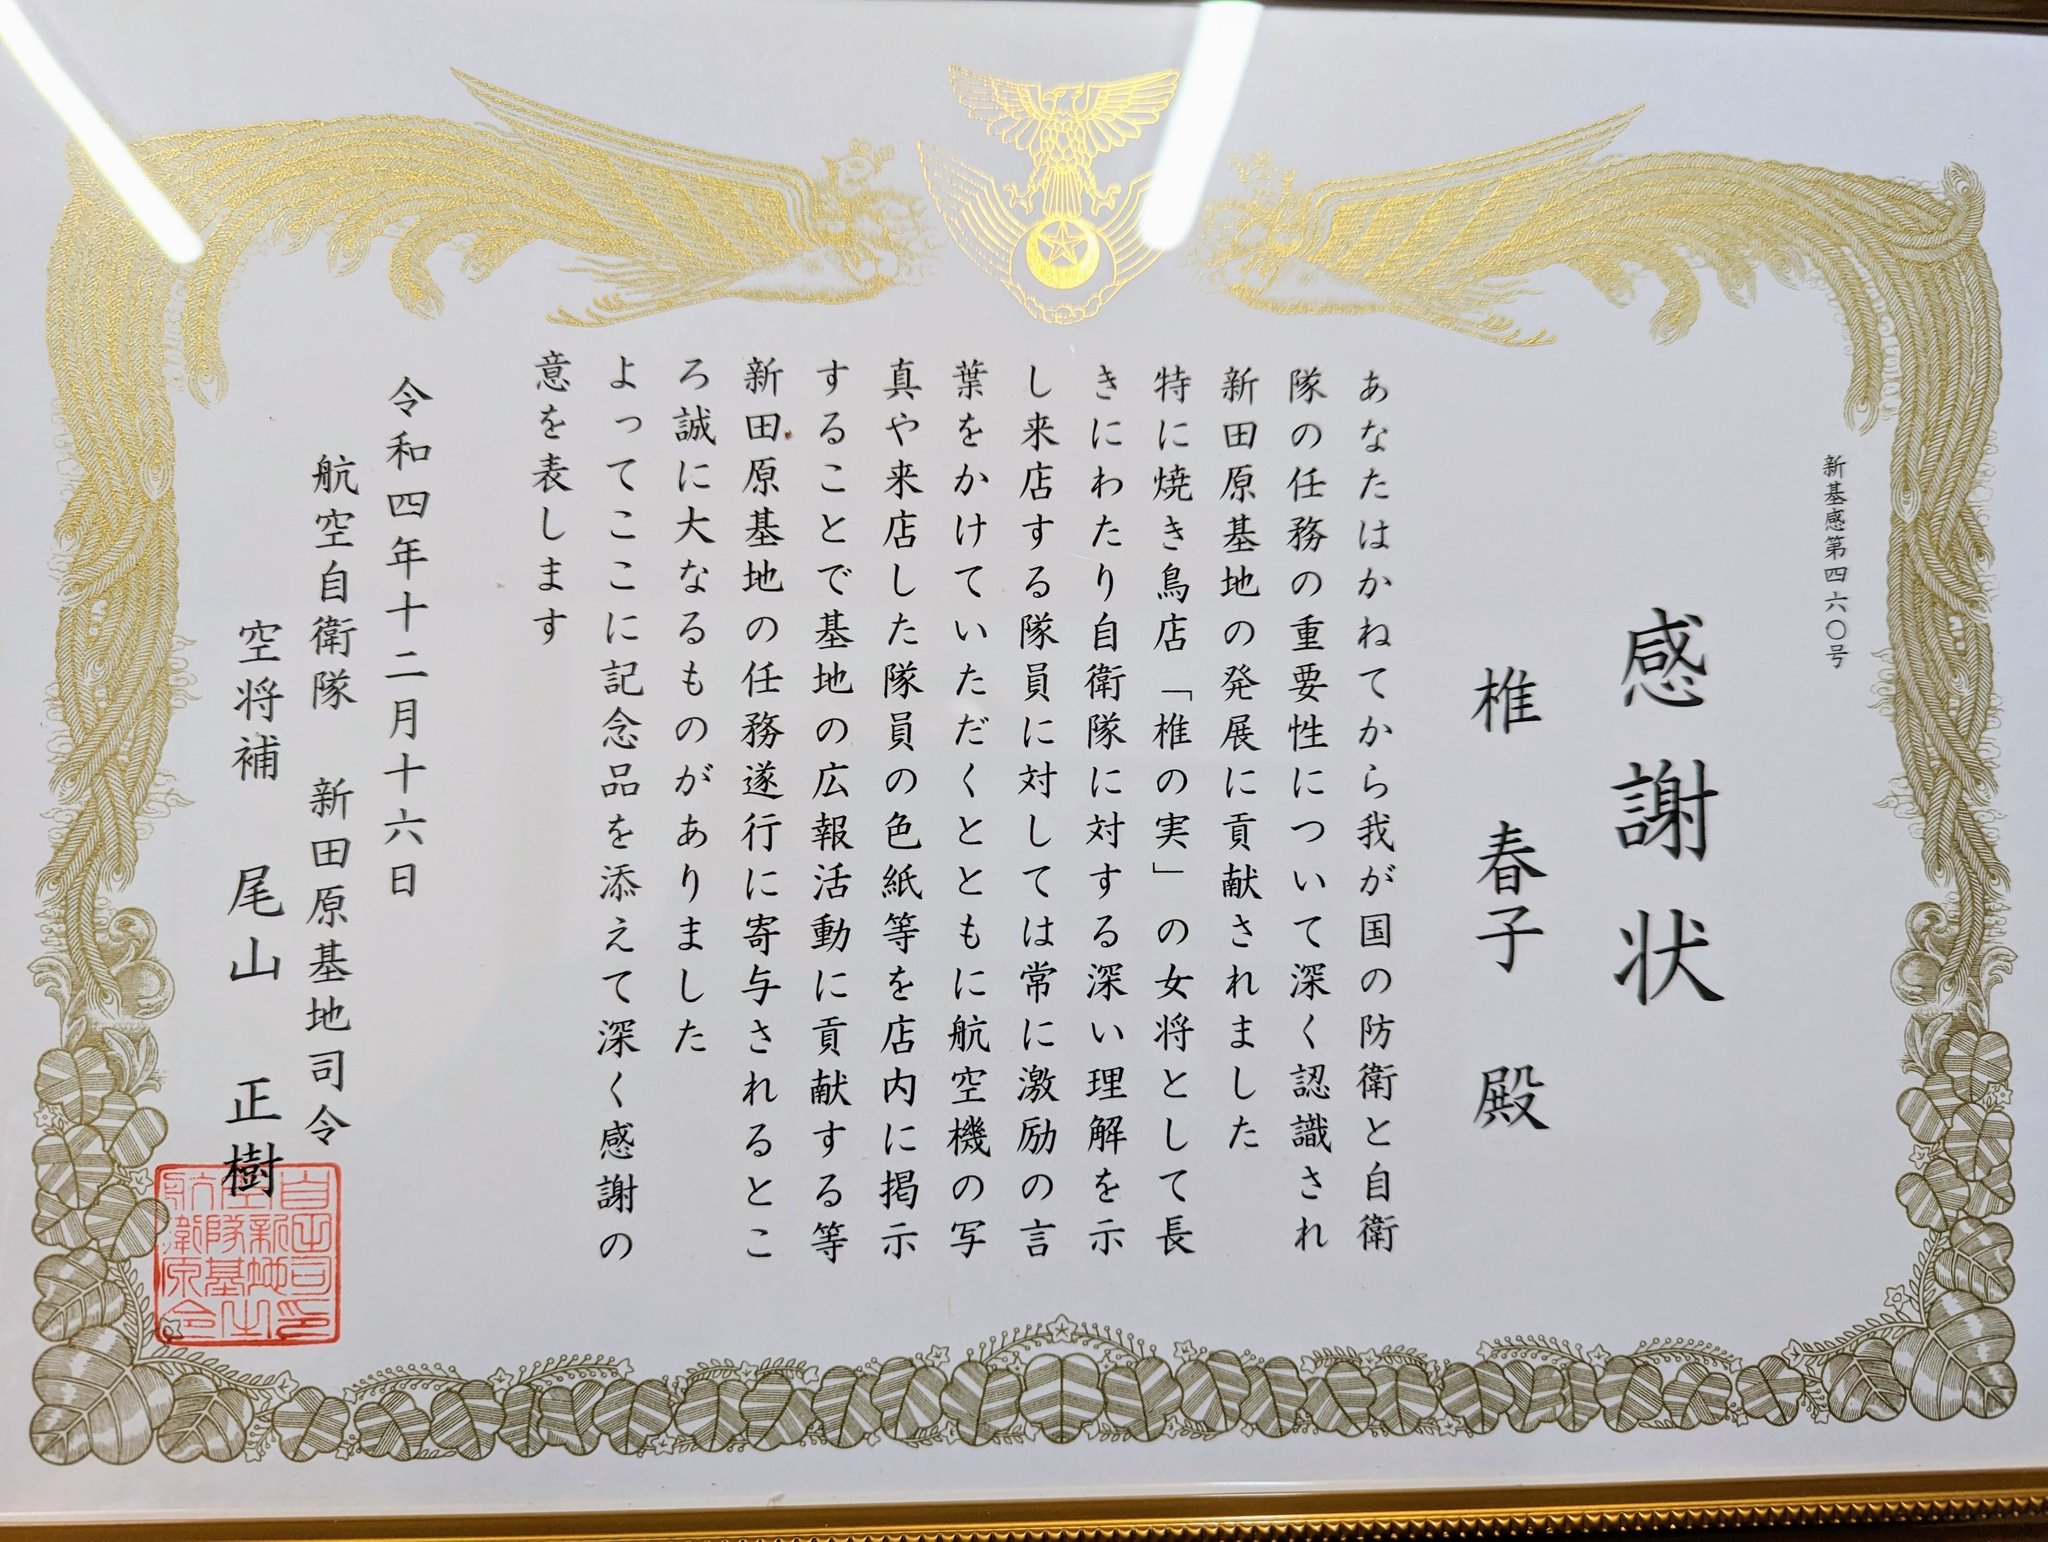 新基感第四六〇号
感謝状
椎 春子 殿
あなたはかねてから我が国の防衛と自衛
隊の任務の重要性について深く認識され
新田原基地の発展に貢献されました
特に焼き鳥店「椎の実」の女将として長
きにわたり自衛隊に対する深い理解を示
し来店する隊員に対しては常に激励の言
葉をかけていただくとともに航空機の写
真や来店した隊員の色紙等を店内に掲示
することで基地の広報活動に貢献する等
新田原基地の任務遂行に寄与されるとこ
ろ誠に大なるものがありました
よってここに記念品を添えて深く感謝の
意を表します
令和四年十二月十六日
航空自衛隊 新田原基地司令
空将補 尾山 正樹